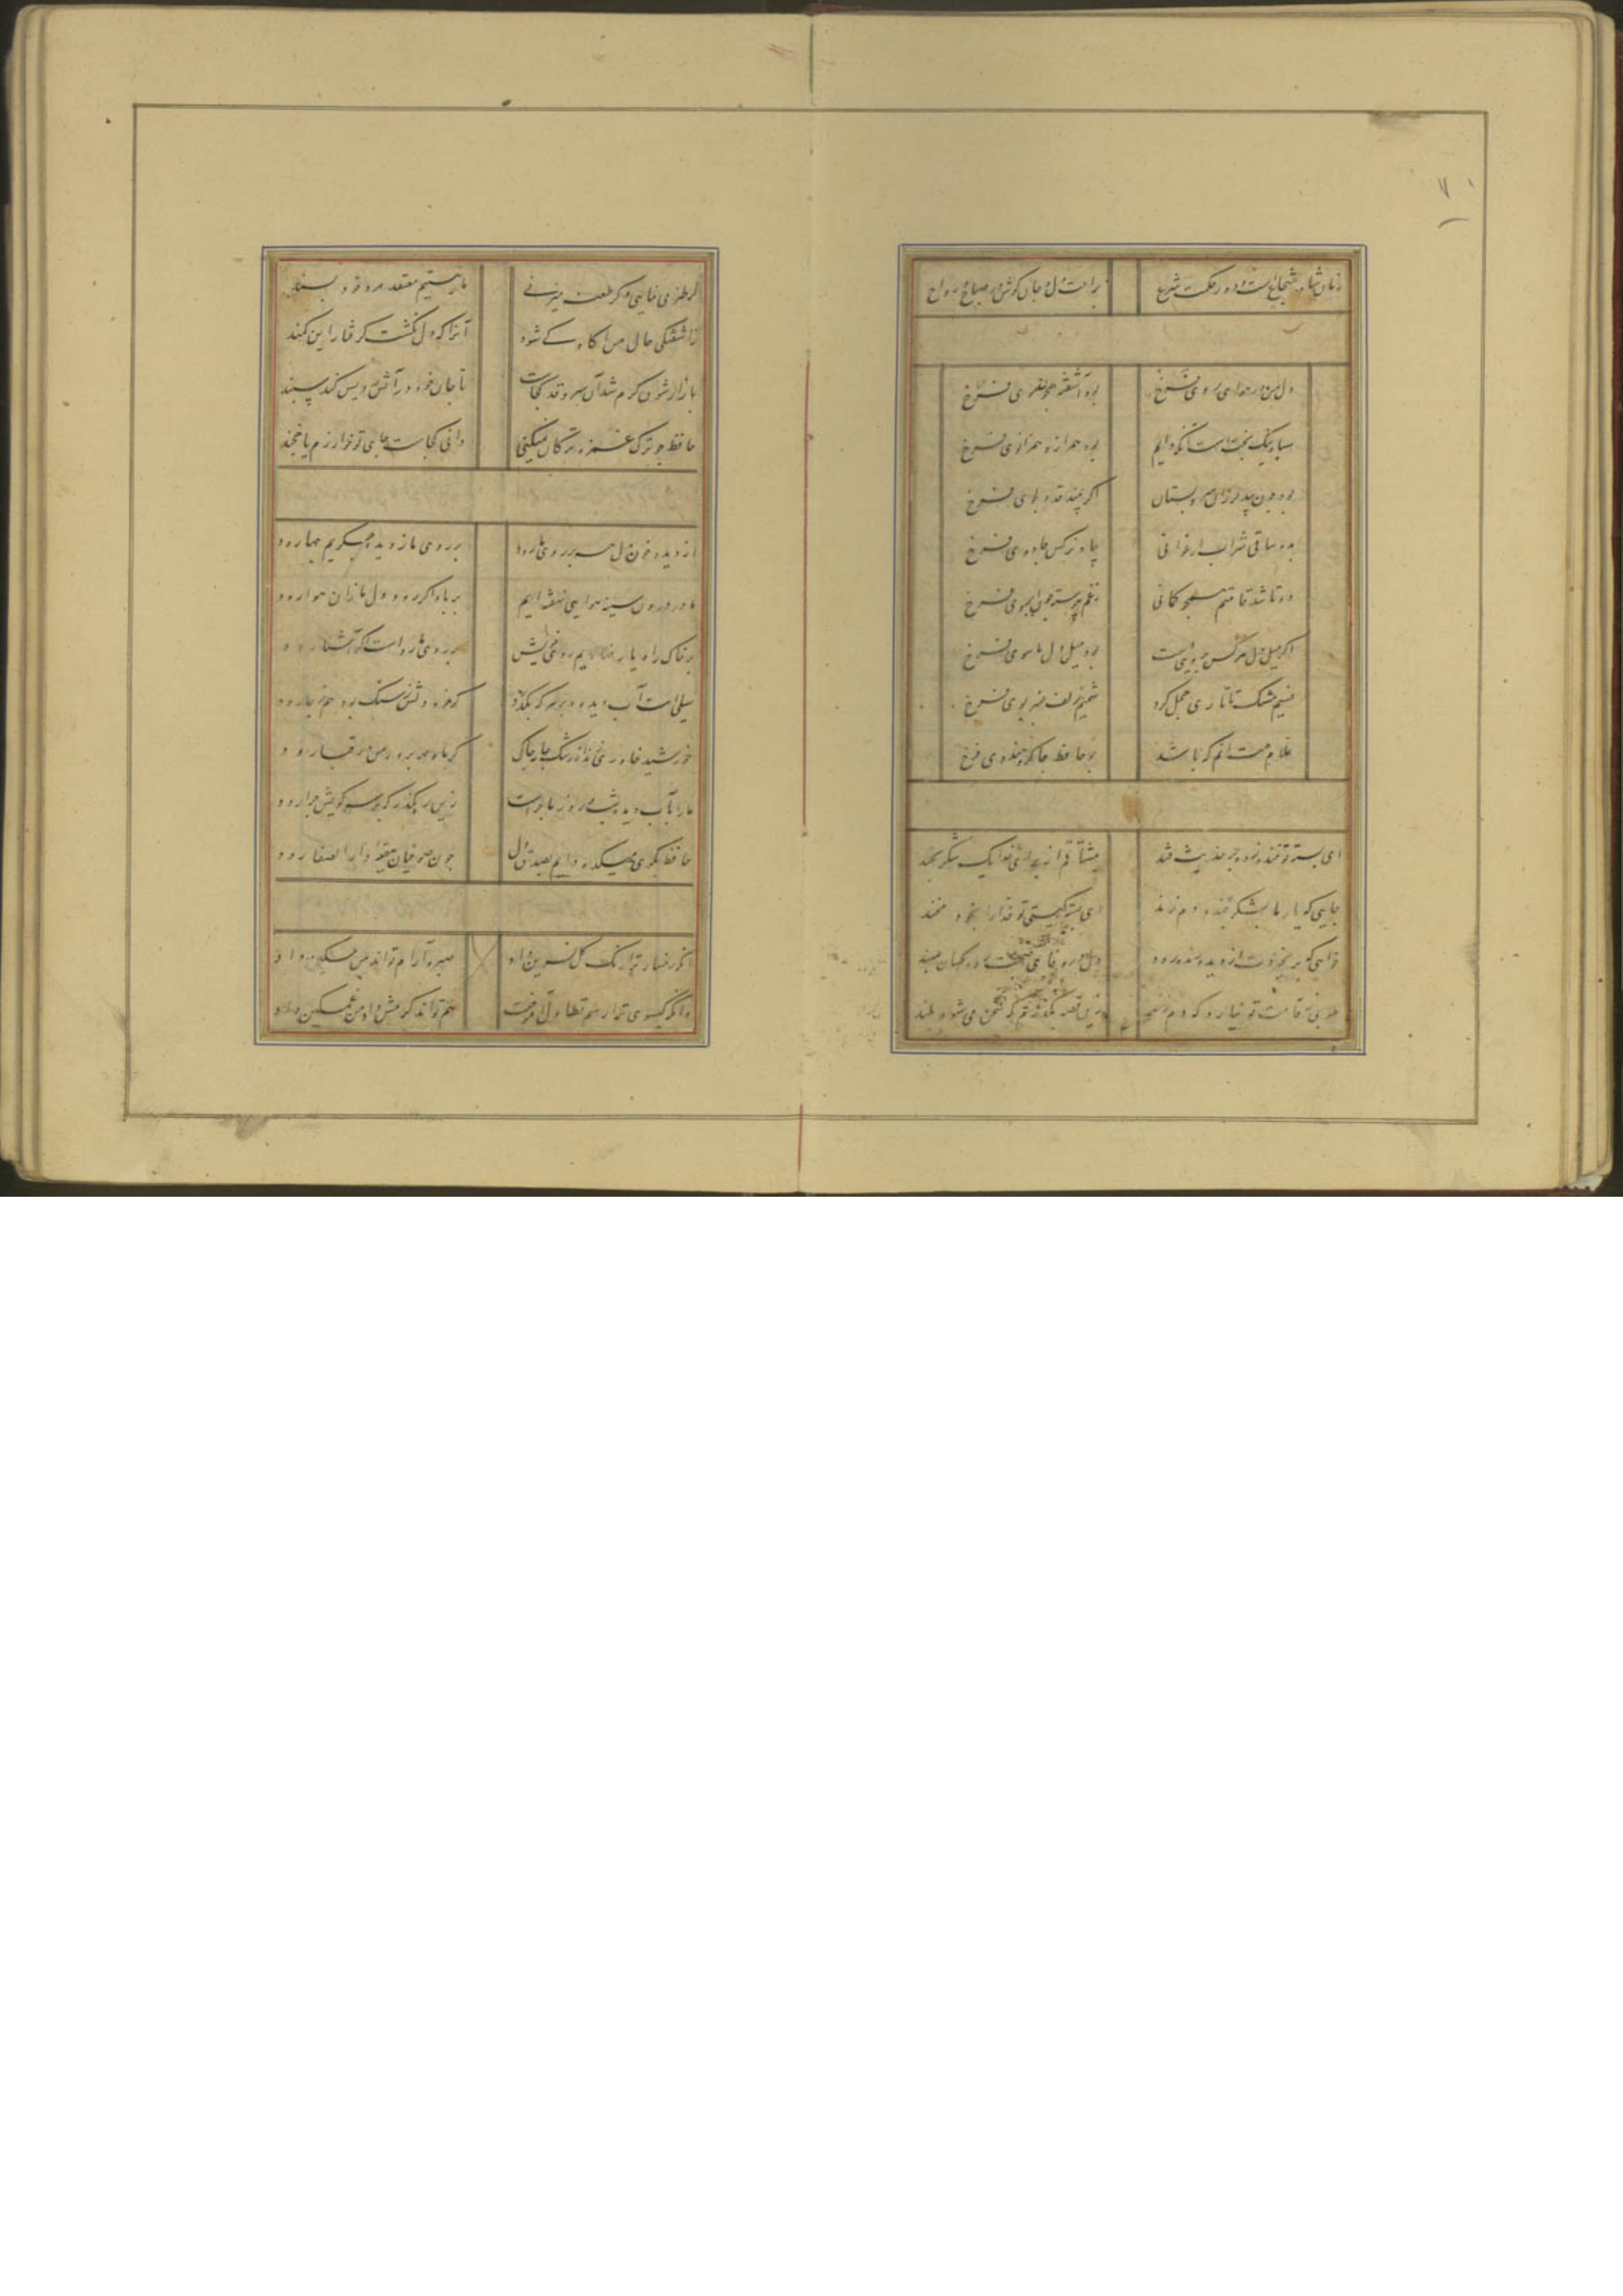 زمان شاه شجاع است و دور حکمت شرع براحت دل و جان کوش در صباح و رواح
دل من در هوای روی فرخ بود آشفته همچو موی فرخ
سیاه نیک بخت است آنکه دایم بود همراز و همزانوی فرخ
بود چون بید لرزان سرو بستان اگر بیند قد دلجوی فرخ
بده ساقی شراب ارغوانی بیاد نرکس جادوی فرخ
دوتا شد قامتم همچو کمانی ز غم پیوسته چون ابروی فرخ
اگر میل دل هرکس بجویی است بود میل دل ما سوی فرخ
نسیم مشک تاتاری خجل کرد شمیم زلف عنبر بوی فرخ
غلام همت آنم که باشد چو حافظ چاکر هندوی فرخ
ای پسته تو خنده زده بر حدیث قند مشتاقم از برای خدا یک شکر بخند
جایی که یار ما بشکر خنده دم زند ای پسته کیستی تو خدا را بخود مخند
خواهی که بر نخیزدت از دیده رود رود دل در وفای صحبت رود کسان مبند
طوبی ز قامت تو نیارد که دم زند زین قصه بگذرم که سخن می شود بلند
گر طنز می نمایی و گر طعنه میزنی ما نیستیم معتقد مرد خود پسند
زاشفتگی حال من آگاه کی شود آنرا که دل نگشت گرفتار این کمند
بازار شوق گرم شد آن سرو قد کجاست تا جان خود بر آتش رویش کند سپند
حافظ چو ترک غمزه ترکان نمیکنی دانی کجاست جای تو خوارزم یا خجند
از دیده خون دل همه بر روی ما رود بر روی ما ز دیده چگویم چها رود
ما در درون سینه هوایی نهفته ایم بر باد اگر رود دل ما زان هوا رود
بر خاک راه یار نهادیم روی خویش بر روی ما رواست اگر آشنا رود
سیلی است آب دیده و بر هر که بگذرد گرخود دلش ز سنگ بود هم ز جا رود
خورشید خاوری کند از رشک جامه چاک گر ماه مهر پرور من در قبا رود
ما را بآب دیده شب و روز ماجراست زین رهگذر که بر سر کویش چرا رود
حافظ بکوی میکده دایم بصدق دل چون صوفیان صفه دار الصفا رود
آنکه رخسار ترا رنگ گل نسرین داد صبر و آرام تواند بمن مسکین داد
وانکه گیسوی ترا رسم تطاول آموخت هم تواند کرمش داد من غمگین داد